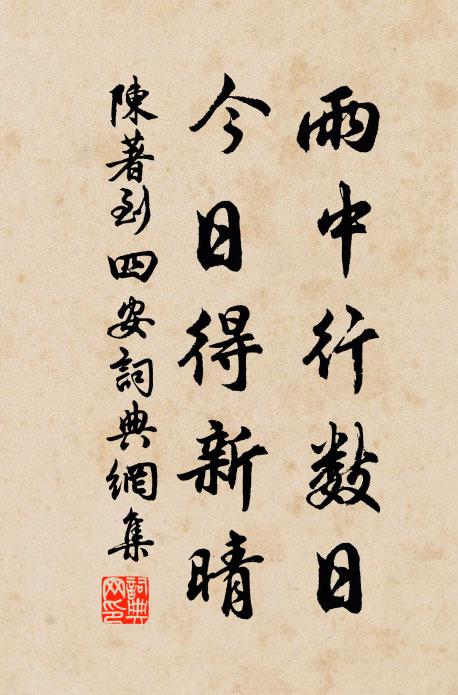 雨中行数日
今日得新晴
陳著到四安詞典網集
詞典
网印